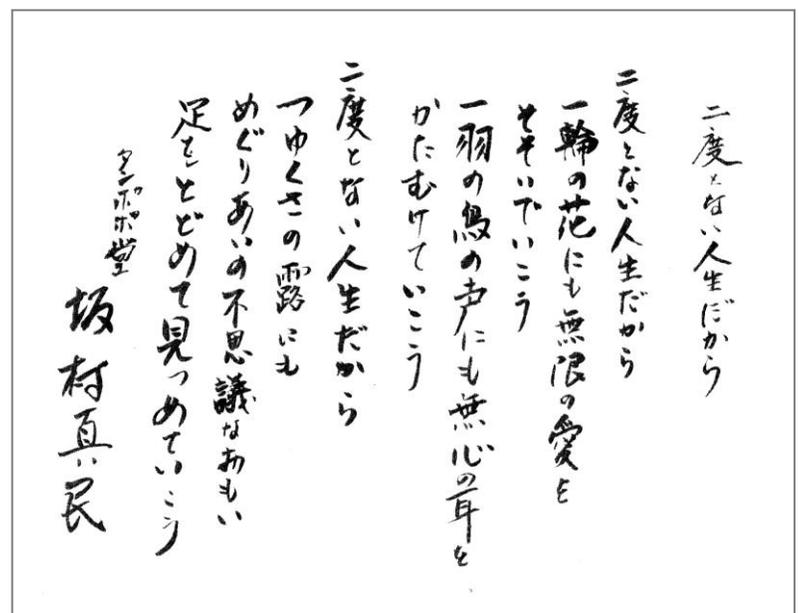 二度とない人生だから
二度とない人生だから
一輪の花にも無限の愛を
そそいでいこう
一羽の鳥の声にも無心の耳を
かたむけていこう
二度とない人生だから
つゆくさの露にも
めぐりあいの不思議なおもい
足をとどめて見つめていこう
タンポポ堂
坂村真民